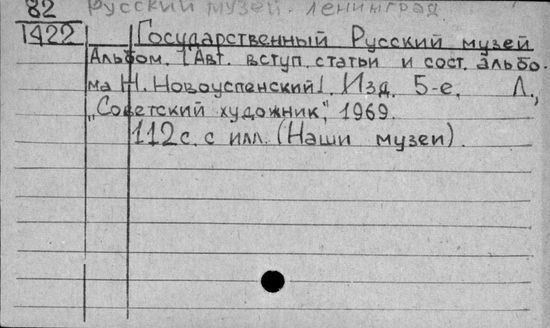 82 Русский музей. Ленинград
1422 Государственный Русский музей
Альбом. [Авт. вступ. статьи и сост. альбо-
ма Н. Новоуспенский]. Изд. 5-е. Л.,
„Советский художник", 1969.
112с. с илл. (Наши музеи).